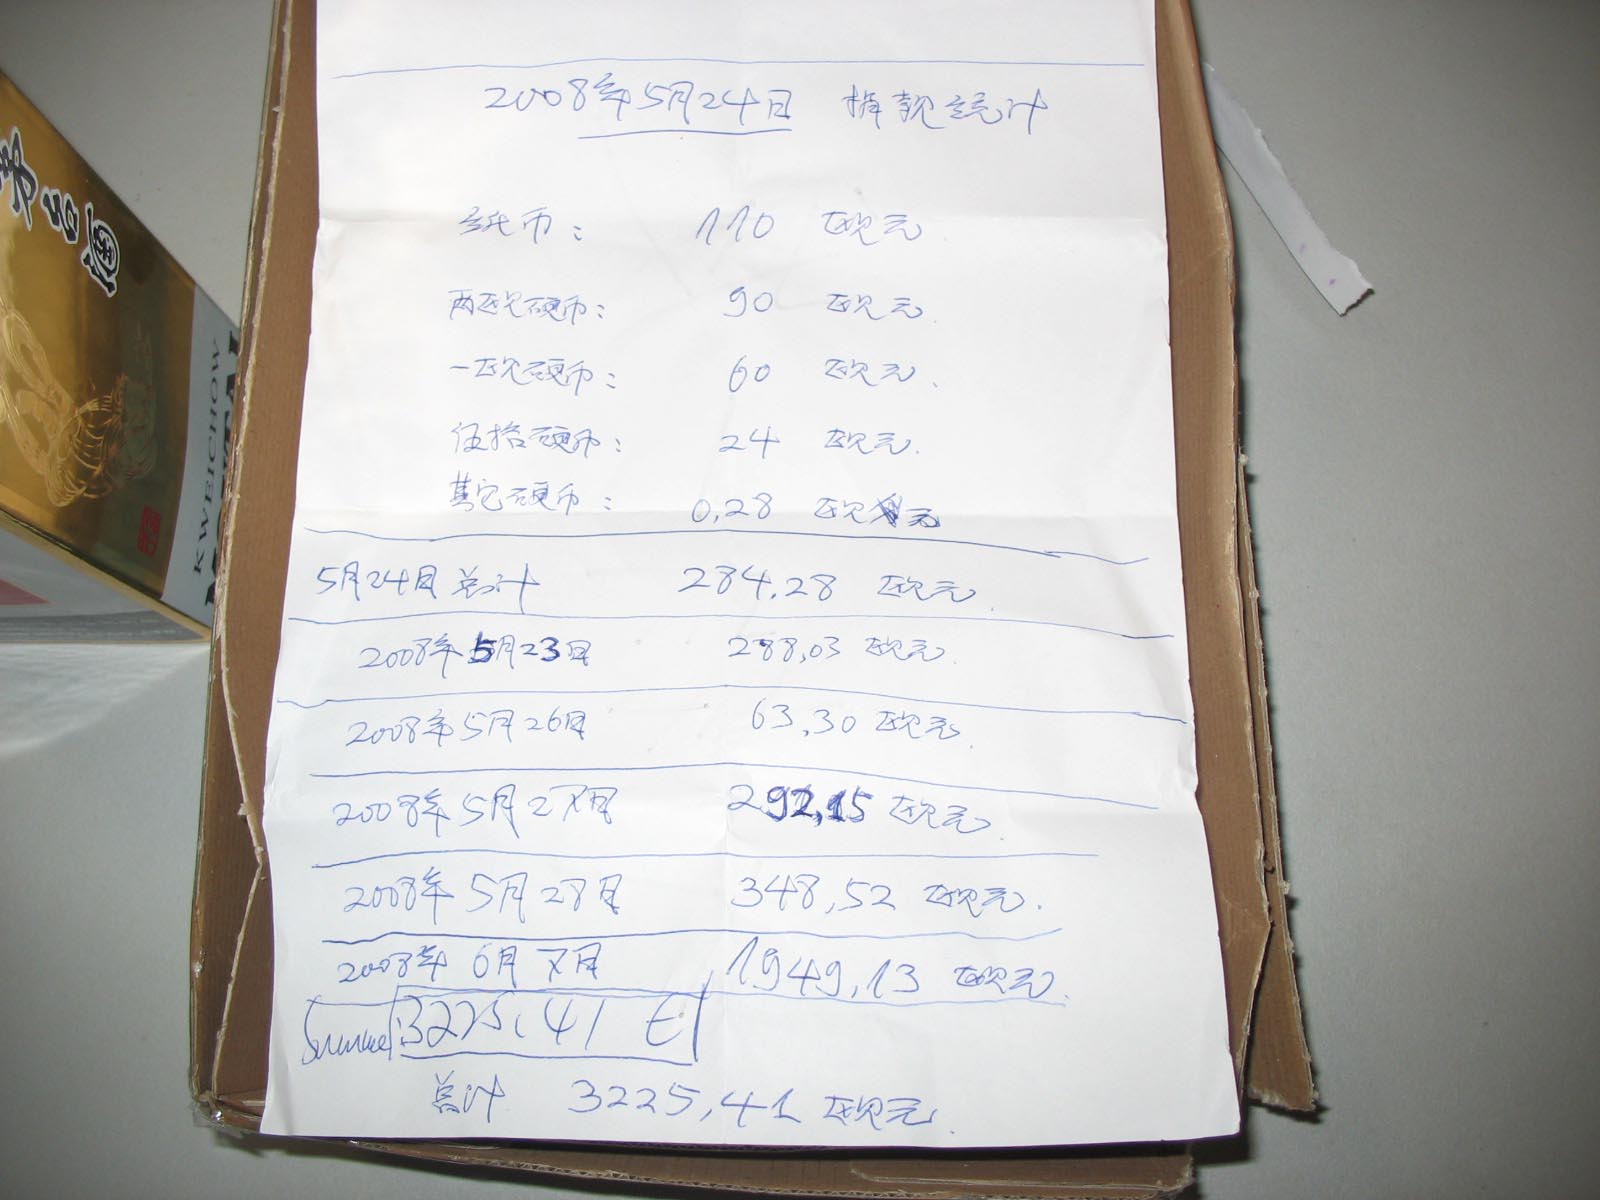 2008年5月24日 捐款统计
纸币: 110 欧元
两欧硬币: 90 欧元.
一欧硬币: 60 欧元.
伍拾硬币: 24 欧元.
其它硬币: 0,28 欧元
5月24日总计 284,28 欧元.
2008年5月23日 288,03 欧元.
2008年5月26日 63,30 欧元.
2008年5月27日 292,15 欧元.
2008年5月28日 348,52 欧元.
2008年6月7日 1949,13 欧元.
Summe 3225,41 €
总计 3225,41 欧元.
茅台酒
KWEICHOW
MOUTAI